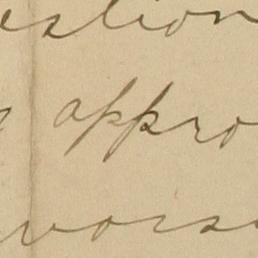 estion
appro
vors